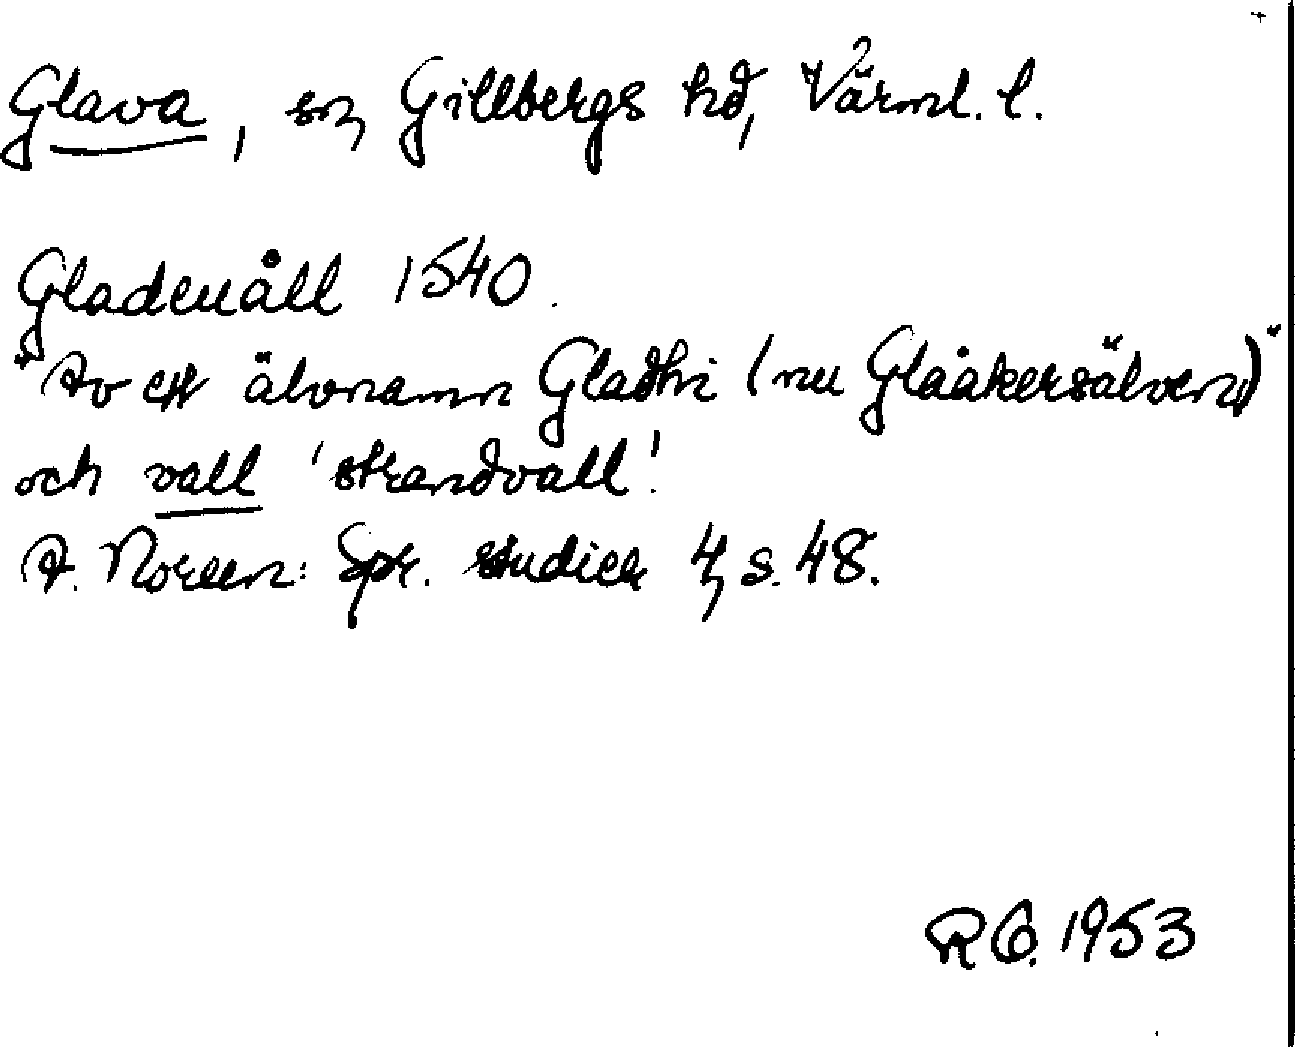 Glava, sn, Gillbergs hd, Värml. l.
Gladeuåll 1540.
"Av ett älvnamn Gladhi (nu Glaåkersälven)"
och vall 'strandvall'.
A. Noreen: Spr. studier 4, s. 48.
R G. 1953